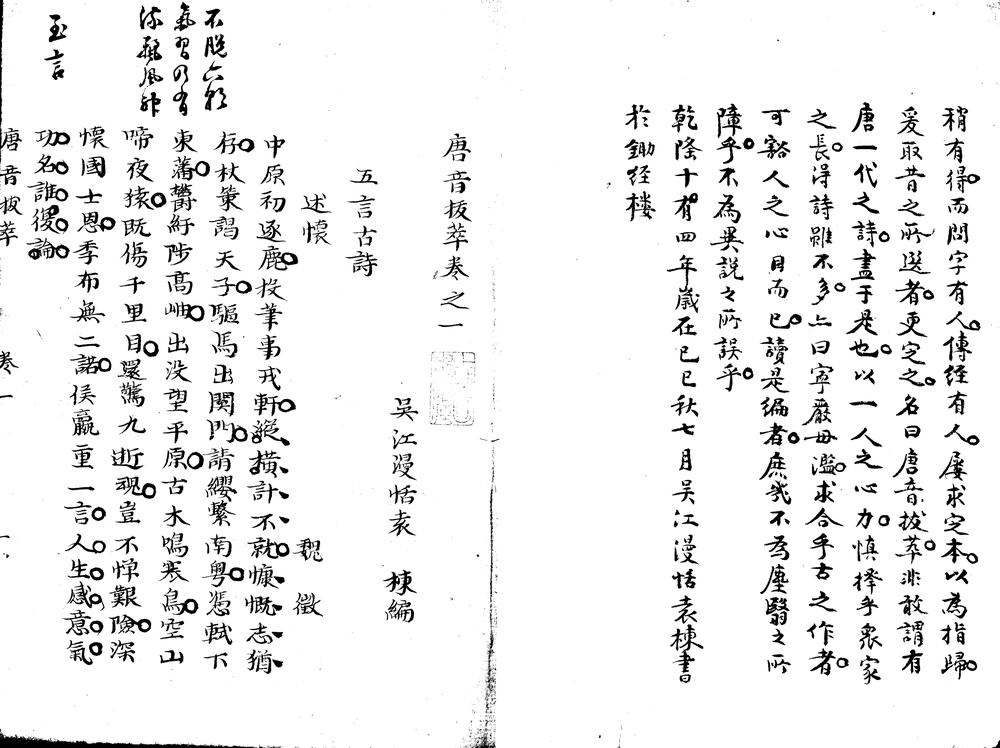 稍有得而問字有人傳經有人屡求定本以為指歸
爰取昔之所選者更定之名曰唐音拔萃非敢謂有
唐一代之詩盡于是也以一人之心力慎擇乎衆家
之長浔詩雖不多亦曰寧嚴毋濫求合乎古之作者
可豁人之心目而已讀是編者庶幾不為塵翳之所
障乎不為異説之所誤乎
乾隆十有四年嵗在己巳秋七月吴江漫恬袁棟書
於鋤经樓
唐音拔萃卷之一
吳江漫恬袁 棟編
五言古詩
述懷 魏徵
中原初逐鹿投筆事戎軒縱横計不就慷慨志猶
存杖策謁天子驅馬出関門請纓繫南粤憑軾下
東藩欎紆陟髙岫出没望平原古木鳴寒鳥空山
啼夜猿既傷千里目還驚九逝魂豈不惮艱險深
懷國士恩季布無二諾侯羸重一言人生感意氣
功名誰復論
不脱六朝
氣習乃有
流麗風神
至言
唐音拔萃 卷一 一